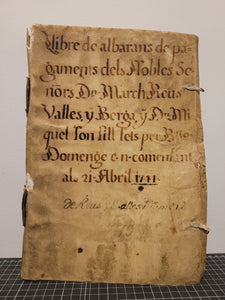 Llibre de albarans de pa-
gaments dels Nobles Se-
ñors, Dn. March Reus
Valles, y Berga, ÿ Dn. Mi-
quel Son fill fets per
Domenge en comensant
als 21 Abril 1741
de Reus y Valles